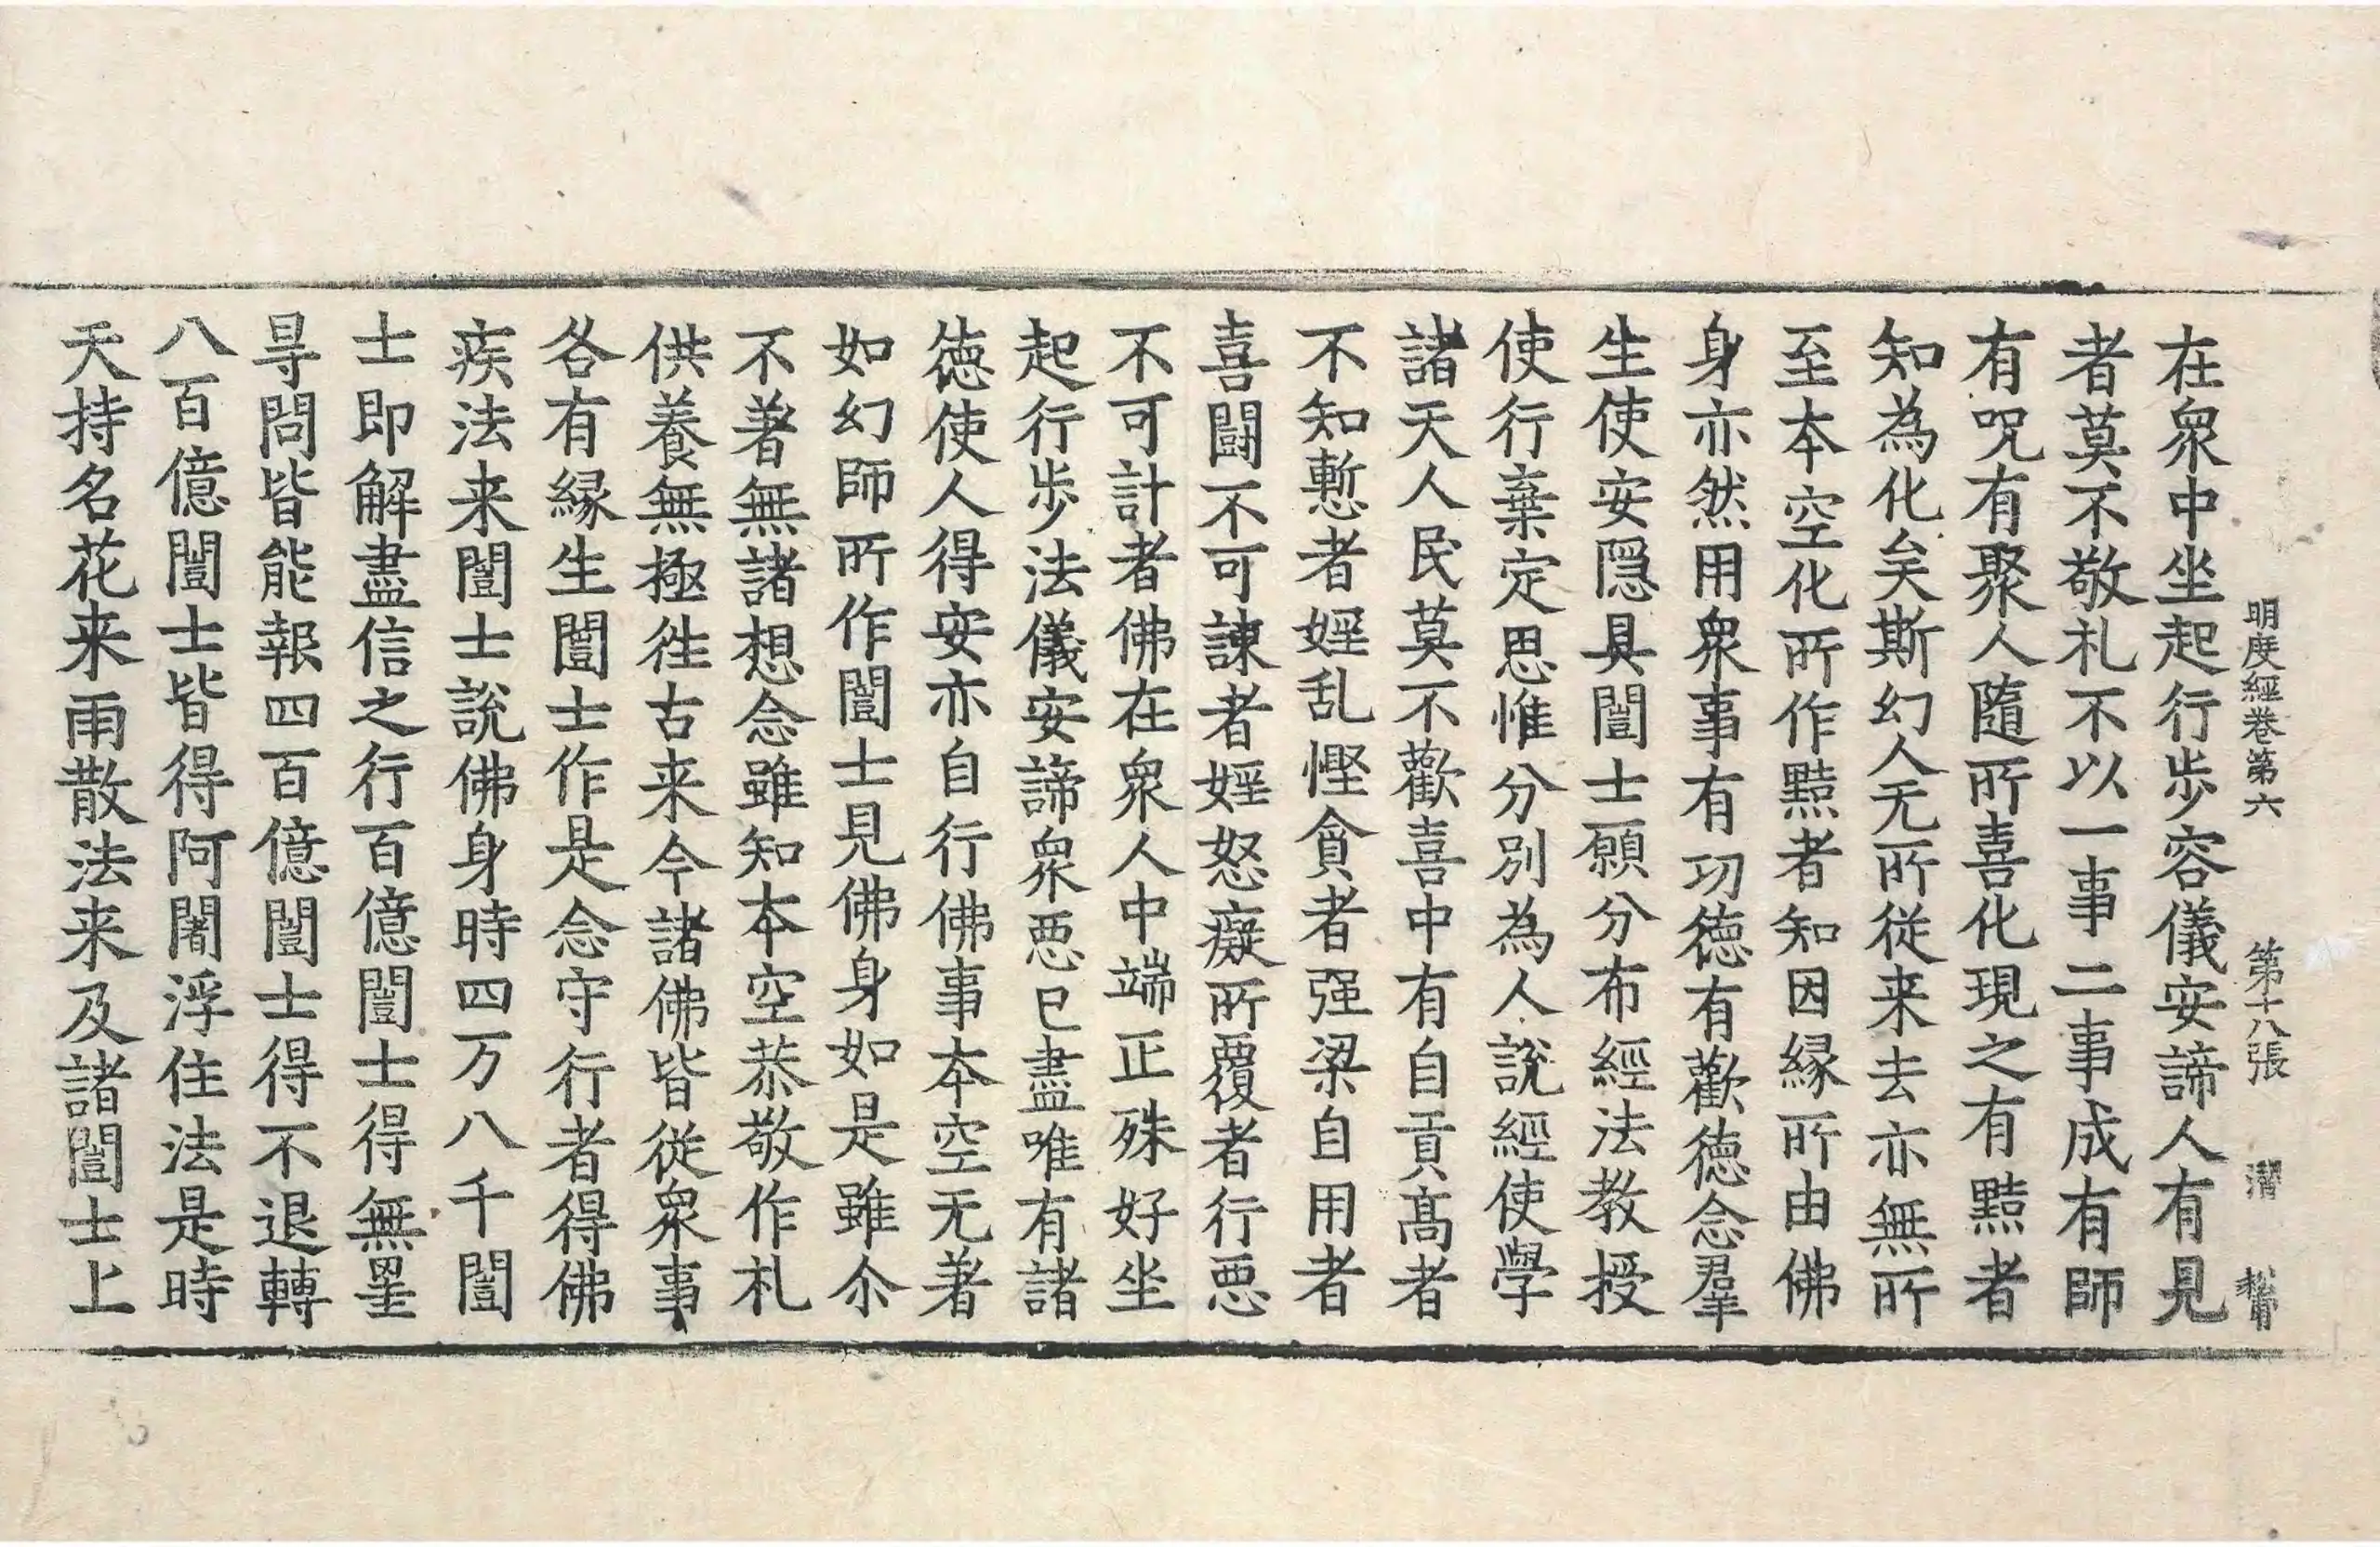 明度經卷第六　第十八張　渭
在衆中坐起行步容儀安諦人有見
者莫不敬札不以一事二事成有師
有呪有聚人隨所喜化現之有黠者
知為化矣斯幻人无所從来去亦無所
至本空化所作黠者知因縁所由佛
身亦然用衆事有功徳有歡徳念羣
生使安隱具闓士願分布經法教授
使行棄定思惟分別為人說經使學
諸天人民莫不歡喜中有自貢髙者
不知慙者婬乱慳貪者强梁自用者
喜闘不可諫者婬怒癡所覆者行悪
不可計者佛在衆人中端正殊好坐
起行步法儀安諦衆悪已盡唯有諸
徳使人得安亦自行佛事本空无著
如幻師所作闓士見佛身如是雖尒
不著無諸想念雖知本空恭敬作札
供養無極徃古来今諸佛皆從衆事
各有縁生闓士作是念守行者得佛
疾法来闓士說佛身時四万八千闓
士即解盡信之行百億闓士得無罣
㝵問皆能報四百億闓士得不退轉
八百億闓士皆得阿闍浮住法是時
天持名花来雨散法来及諸闓士上